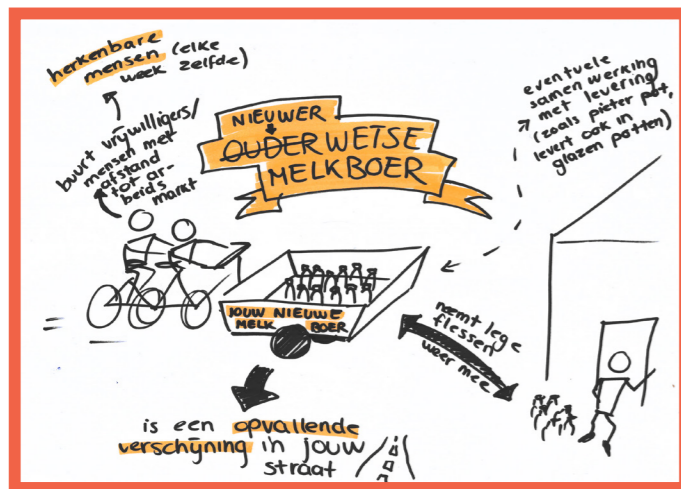 herkenbare
mensen (elke
week zelfde)
buurt vrijwilligers/
mensen met
afstand
tot ar-
beids
markt
NIEUWER
OUDERWETSE
MELKBOER
eventuele
samenwerking
met levering
(zoals pieter pot,
levert ook in
glazen potten)
JOUW NIEUWE
MELK BOER
neemt lege
flessen
weer mee
is een opvallende
verschijning in jouw
straat